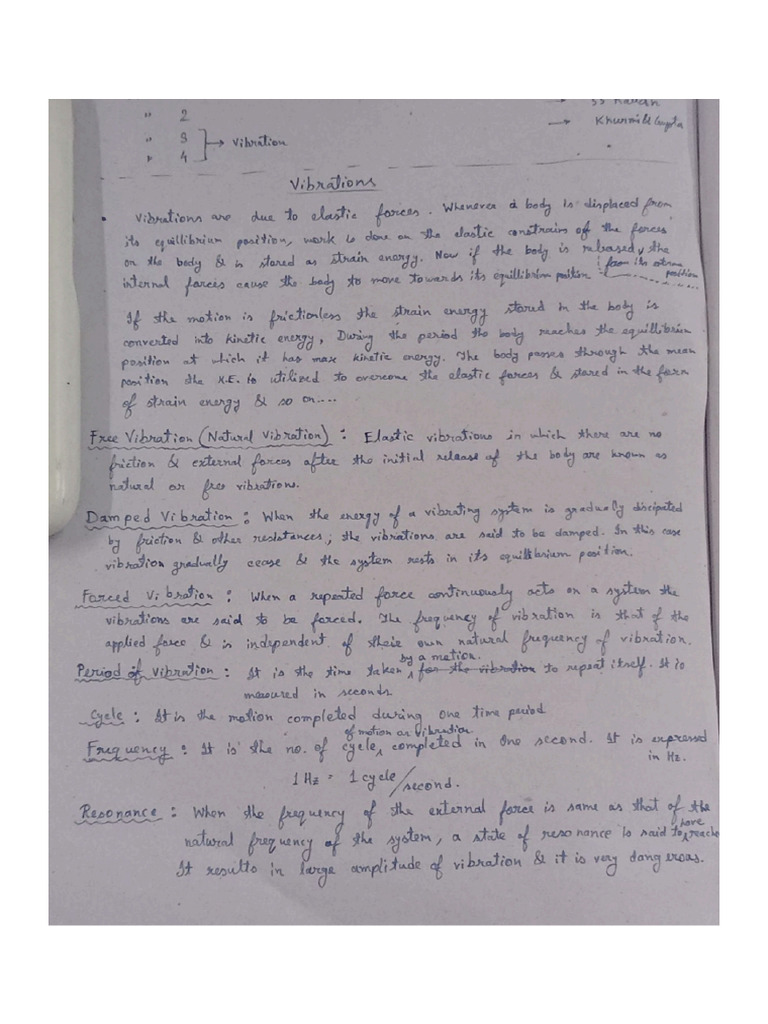 " 2 → SS Rattan
" 3 → Khurmi & Gupta
" 4 → Vibration
Vibrations
Vibrations are due to elastic forces. Whenever a body is displaced from
its equillibrium position, work is done on the elastic constrains of the forces
on the body & is stored as strain energy. Now if the body is released, the
from its
internal forces cause the body to move towards its equillibrium position position
If the motion is frictionless the strain energy stored in the body is
converted into kinetic energy, During the period the body reaches the equillibrium
position at which it has max kinetic energy. The body passes through the mean
position the K.E. is utilized to overcome the elastic forces & stored in the form
of strain energy & so on....
Free Vibration (Natural Vibration) : Elastic vibrations in which there are no
friction & external forces after the initial release of the body are known as
natural or free vibrations.
Damped Vibration : When the energy of a vibrating system is gradually discipated
by friction & other resistances, the vibrations are said to be damped. In this case
vibration gradually cease & the system rests in its equillibrium position.
Forced Vibration : When a repeated force continuously acts on a system the
vibrations are said to be forced. The frequency of vibration is that of the
applied force & is independent of their own natural frequency of vibration.
by a motion.
Period of Vibration : It is the time taken for the vibration to repeat itself. It is
measured in seconds.
Cycle : It is the motion completed during one time period
of motion or vibration
Frequency : It is the no. of cycle completed in one second. It is expressed
in Hz.
1 Hz = 1 cycle/second.
Resonance : When the frequency of the external force is same as that of the
have
natural frequency of the system, a state of resonance is said to reache
It results in large amplitude of vibration & it is very dangerous.